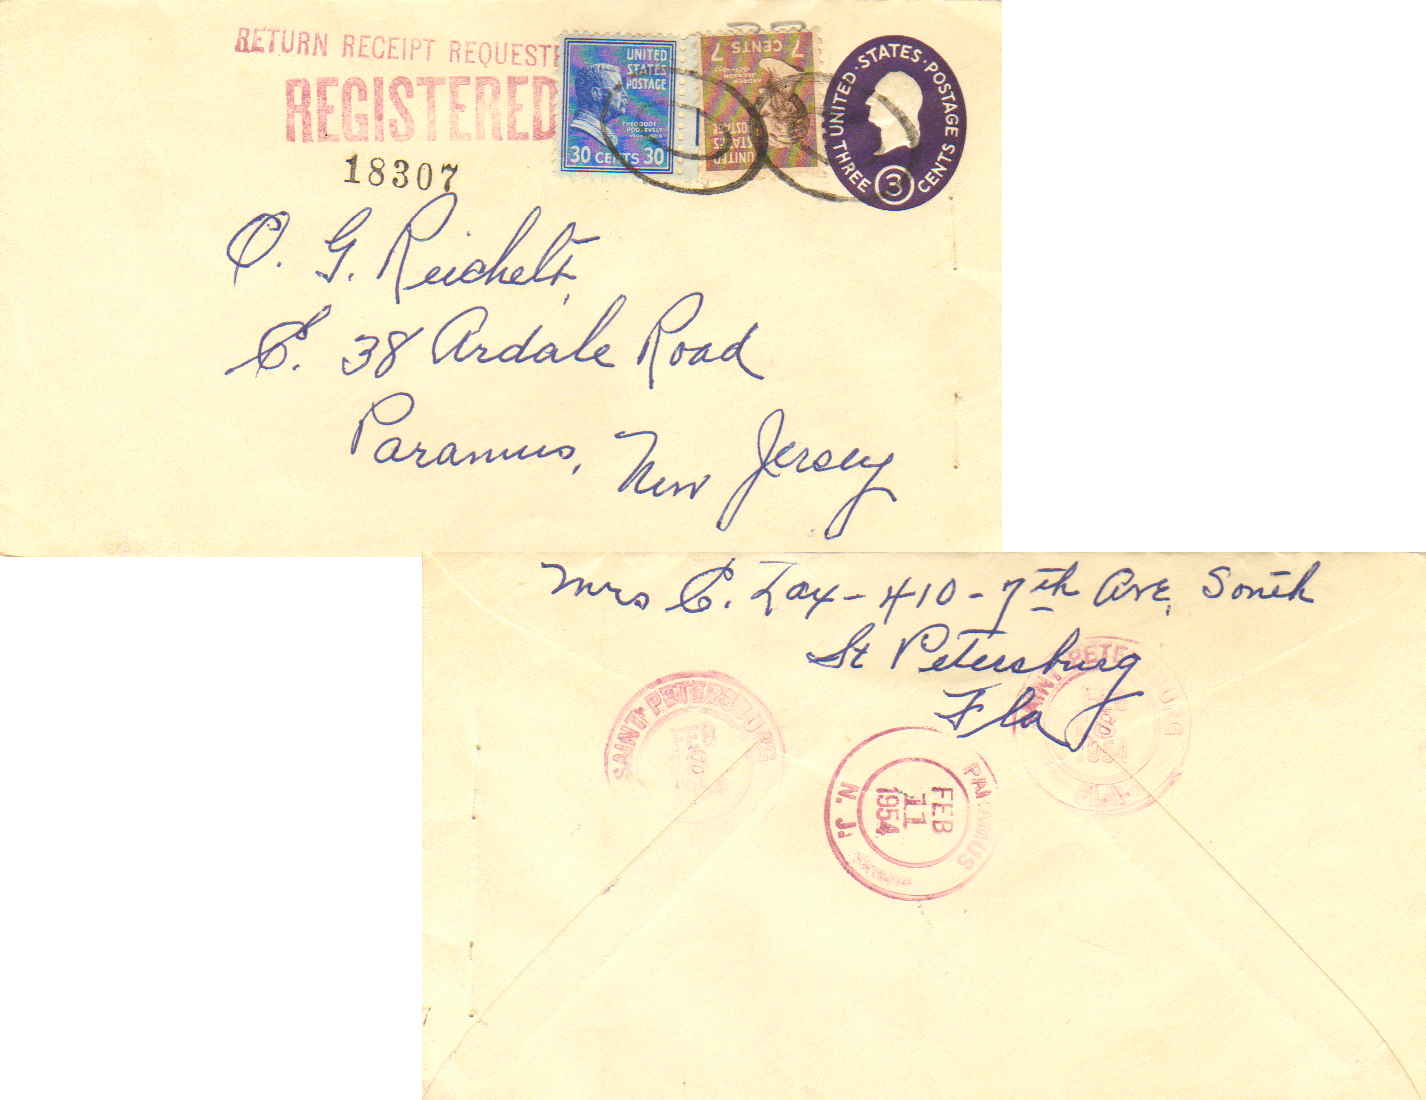 RETURN RECEIPT REQUESTE
REGISTERED
18307
UNITED
STATES
POSTAGE
THEODORE
ROOSEVELT
30 CENTS 30
7 CENTS 7
ANDREW
JACKSON
UNITED
STATES
POSTAGE
UNITED·STATES·POSTAGE
THREE 3 CENTS
O. G. Reichelt,
E. 38 Ardale Road
Paramus, New Jersey
Mrs C. Lax - 410 - 7th Ave, South
St Petersburg
Fla
SAINT PETERSBURG
FEB
SAINT PETERSBURG
FLA.
PARAMUS
FEB
11
1954
N. J.